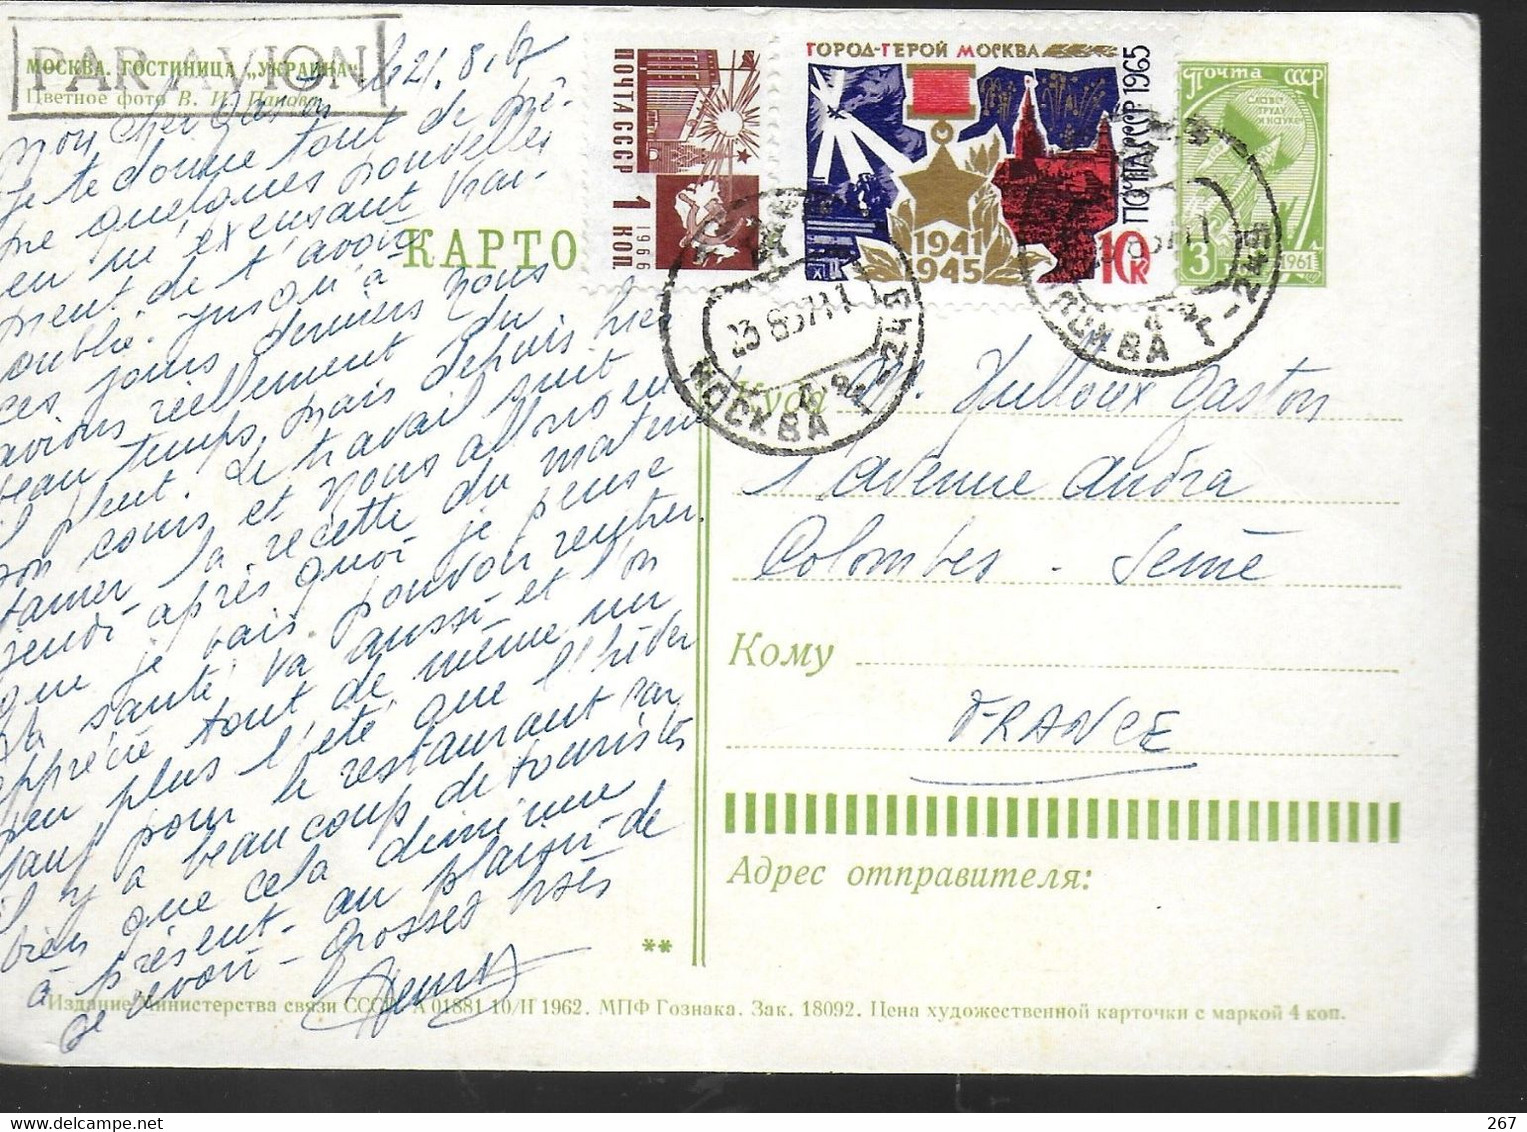 PAR AVION
МОСКВА. ГОСТИНИЦА „УКРАИНА“
Цветное фото В. И. Панова
le 21.8.67
Mon cher Gaston
Je te donne tout de mê-
me quelques nouvelles
en m'excusant vrai-
ment de t'avoir
oublié. jusqu'à
ces jours derniers nous
avions réellement du
beau temps, mais depuis hier
il pleut. Le travail suit
son cours et nous allons en
tamer la recette du matériel
jeudi - après quoi je pense
que je vais pouvoir rentrer.
La santé va aussi - et l'on
apprécie tout de même un
peu plus l'été que l'hiver
sauf pour le restaurant car
il y a beaucoup de touristes
bien que cela diminue
à présent - au plaisir de
se revoir - Grosses bises
КАРТО
ПОЧТА СССР 1 КОП. 1966
ГОРОД-ГЕРОЙ МОСКВА
ПОЧТА СССР 1965
1941
1945
10 К
ПОЧТА СССР
СЛАВА ТРУДУ И НАУКЕ
3 К
1961
МОСКВА Г-248
МОСКВА Г-248
Куда M. Julloux Gaston
1 avenue Audra
Colombes - Seine
Кому
FRANCE
Адрес отправителя:
**
Издание Министерства связи СССР. А 01881 10/II 1962. МПФ Гознака. Зак. 18092. Цена художественной карточки с маркой 4 коп.
267